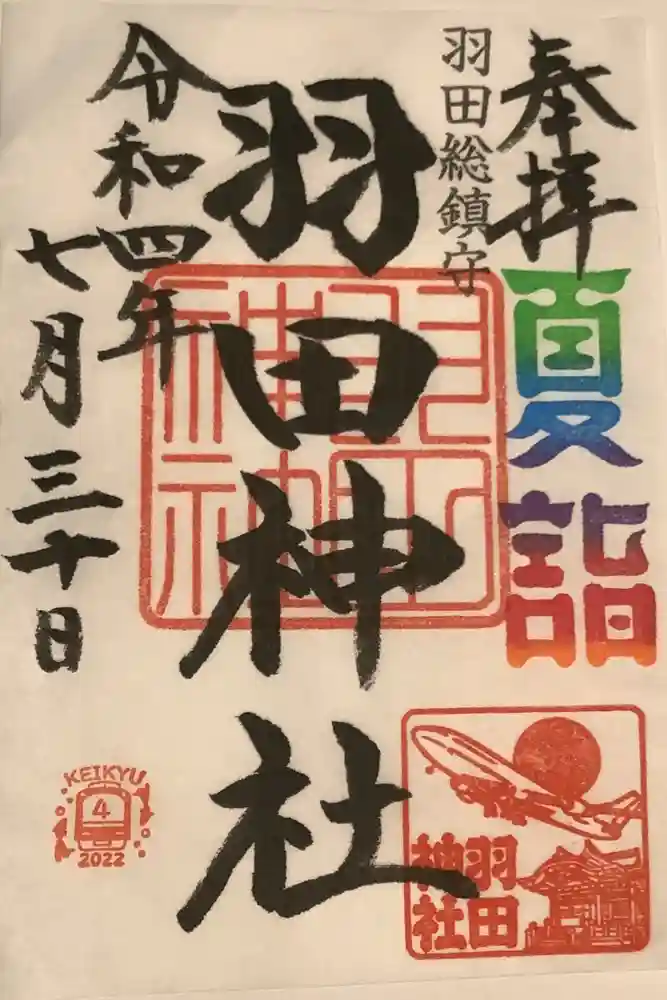 奉拝
夏詣
羽田総鎮守
羽田神社
令和四年
七月三十日
羽田神社
羽田
神社
KEIKYU
4
2022